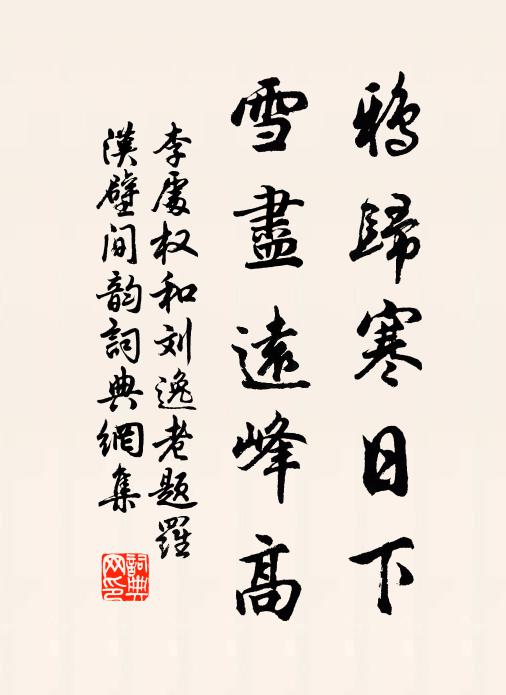 鴉歸寒日下
雪盡遠峰高
李處权和刘逸老题羅
漢壁间韵詞典網集
詞典网印